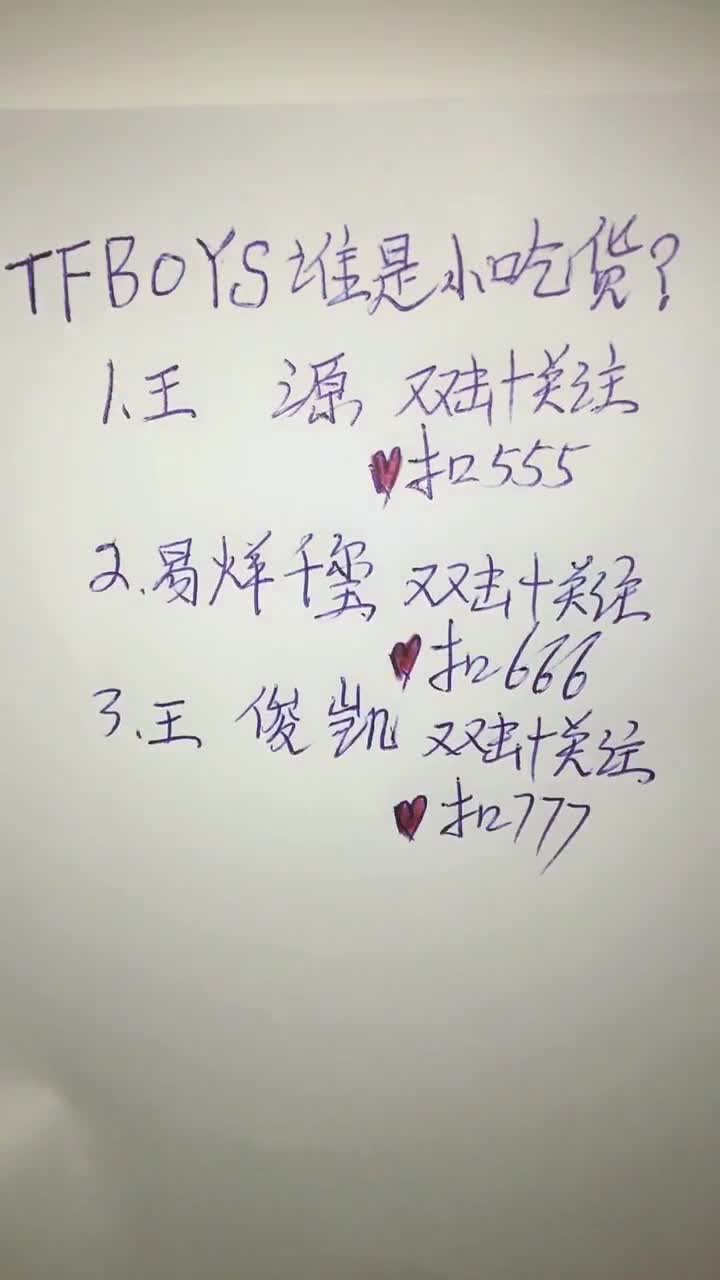 TFBOYS谁是小吃货?
1、王 源 双击+关注
扣555
2.易烊千玺 双击+关注
扣666
3.王 俊凯 双击+关注
扣777